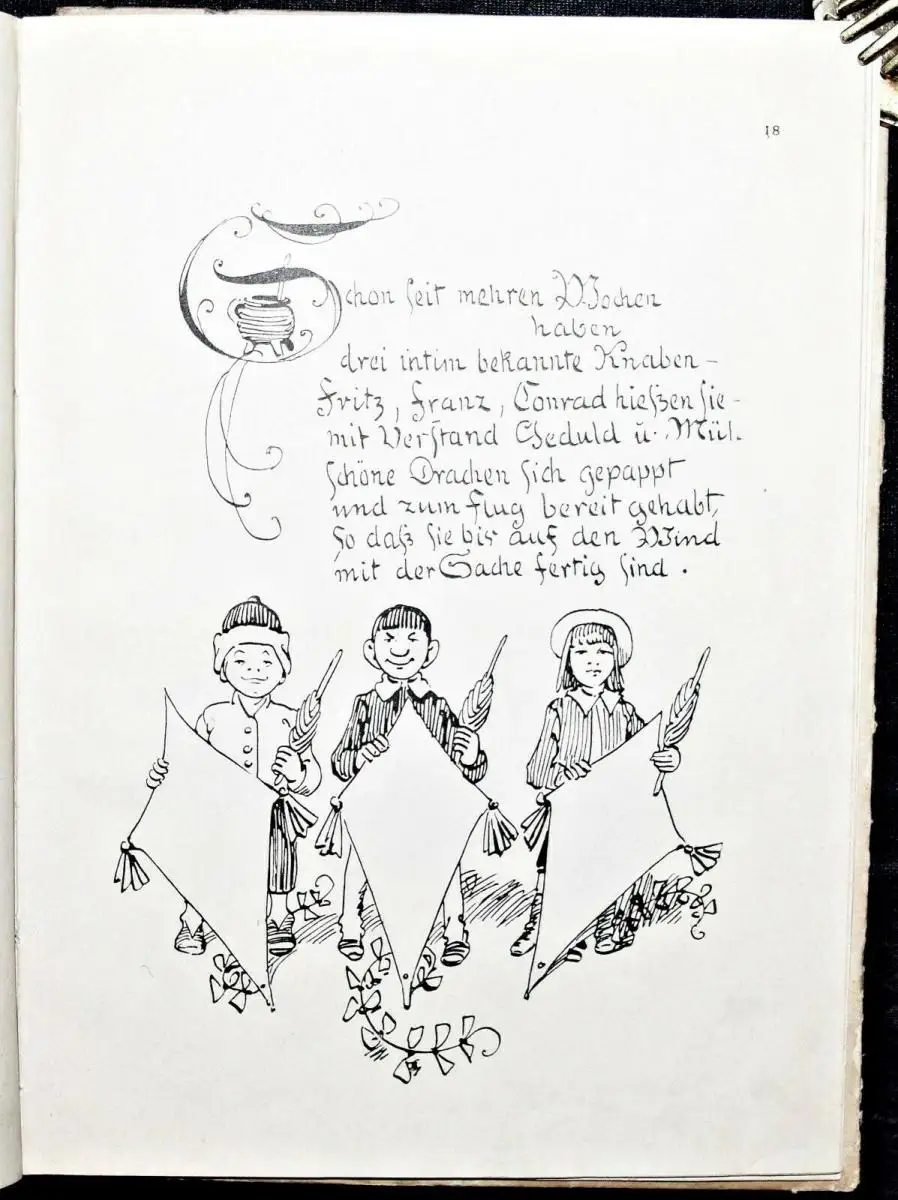 18
Schon seit mehren Wochen
haben
drei intim bekannte Knaben –
Fritz, Franz, Conrad hießen sie –
mit Verstand Geduld u. Müh.
schöne Drachen sich gepappt
und zum Flug bereit gehabt,
so daß sie bis auf den Wind
mit der Sache fertig sind .